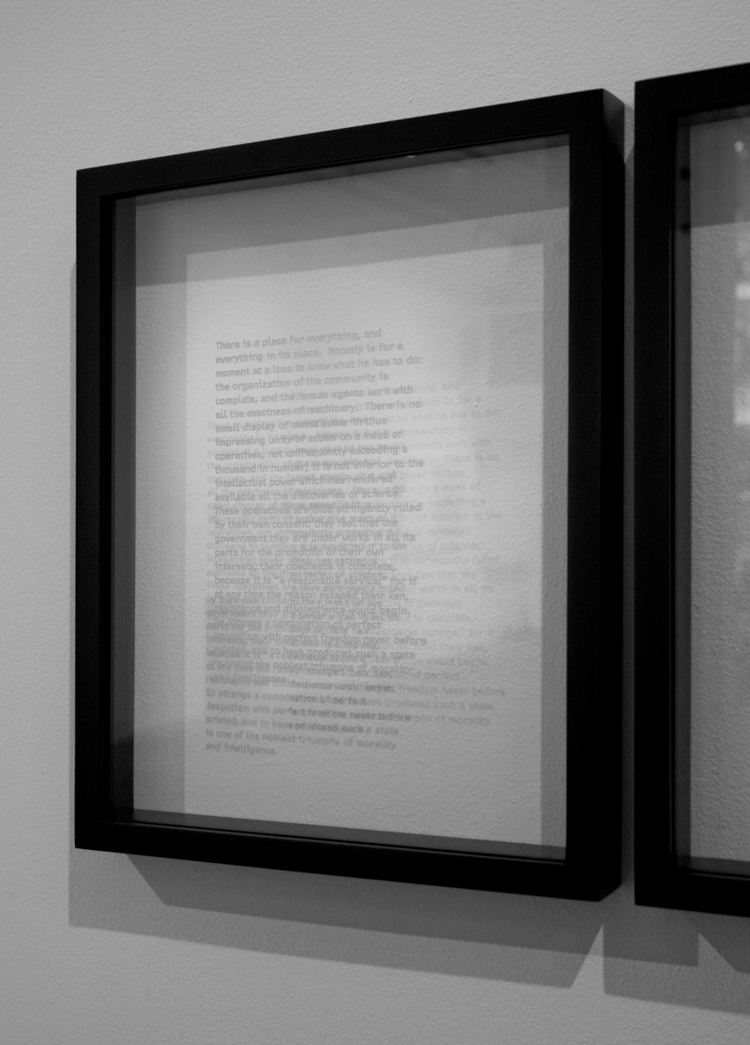 There is a place for everything, and
everything in its place. Nobody is for a
moment at a loss to know what he has to do:
the organization of the community is
complete, and the human agents work with
all the exactness of machinery. There is no
small display of moral power in thus
impressing unity of action on a mass of
operatives, not unfrequently exceeding a
thousand in number; it is not inferior to the
intellectual power which has rendered
available all the discoveries of science.
These operatives are thus stringently ruled
by their own consent: they feel that the
government they are under works in all its
parts for the promotion of their own
interests; their obedience is complete,
because it is "a reasonable service," for if
at any time the reason escaped their ken,
and disobedience would begin.
So strange a combination of perfect
despotism with perfect freedom never before
existed, and to have produced such a state
is one of the noblest triumphs of morality
and intelligence.